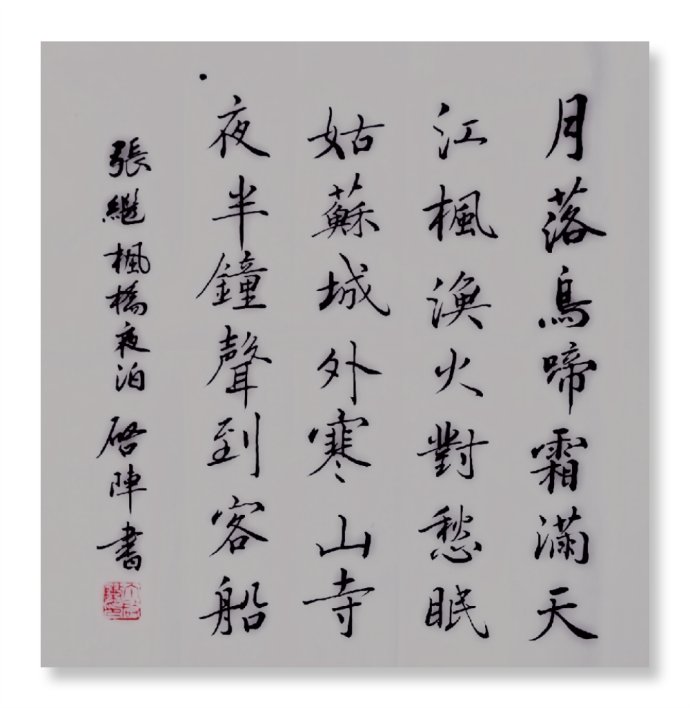 月落烏啼霜滿天
江楓漁火對愁眠
姑蘇城外寒山寺
夜半鐘聲到客船
張繼楓橋夜泊 啓陣書